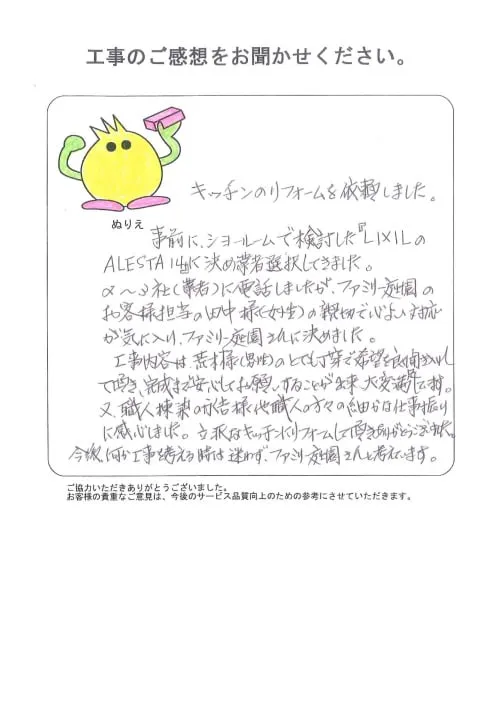 工事のご感想をお聞かせください。
ぬりえ
キッチンのリフォームを依頼しました。
事前に、ショールームで検討した『LIXILの
ALESTA』に決め業者選択してきました。
2～3社(業者)に電話しましたが、ファミリー庭園の
お客様担当の田中様(女性)の親切で心よい対応
が気に入り、ファミリー庭園さんに決めました。
工事内容は、荒木様(男性)のとても丁寧で希望を
て頂き、完成まで安心してお願いすることが出来、大変満足です。
又、職人棟梁の 様他職人の方々の細かな仕事振り
に感心しました。立派なキッチンにリフォームして頂きありがとうございました。
今後、何か工事を考える時は迷わず、ファミリー庭園さんと考えています。
ご協力いただきありがとうございました。
お客様の貴重なご意見は、今後のサービス品質向上のための参考にさせていただきます。